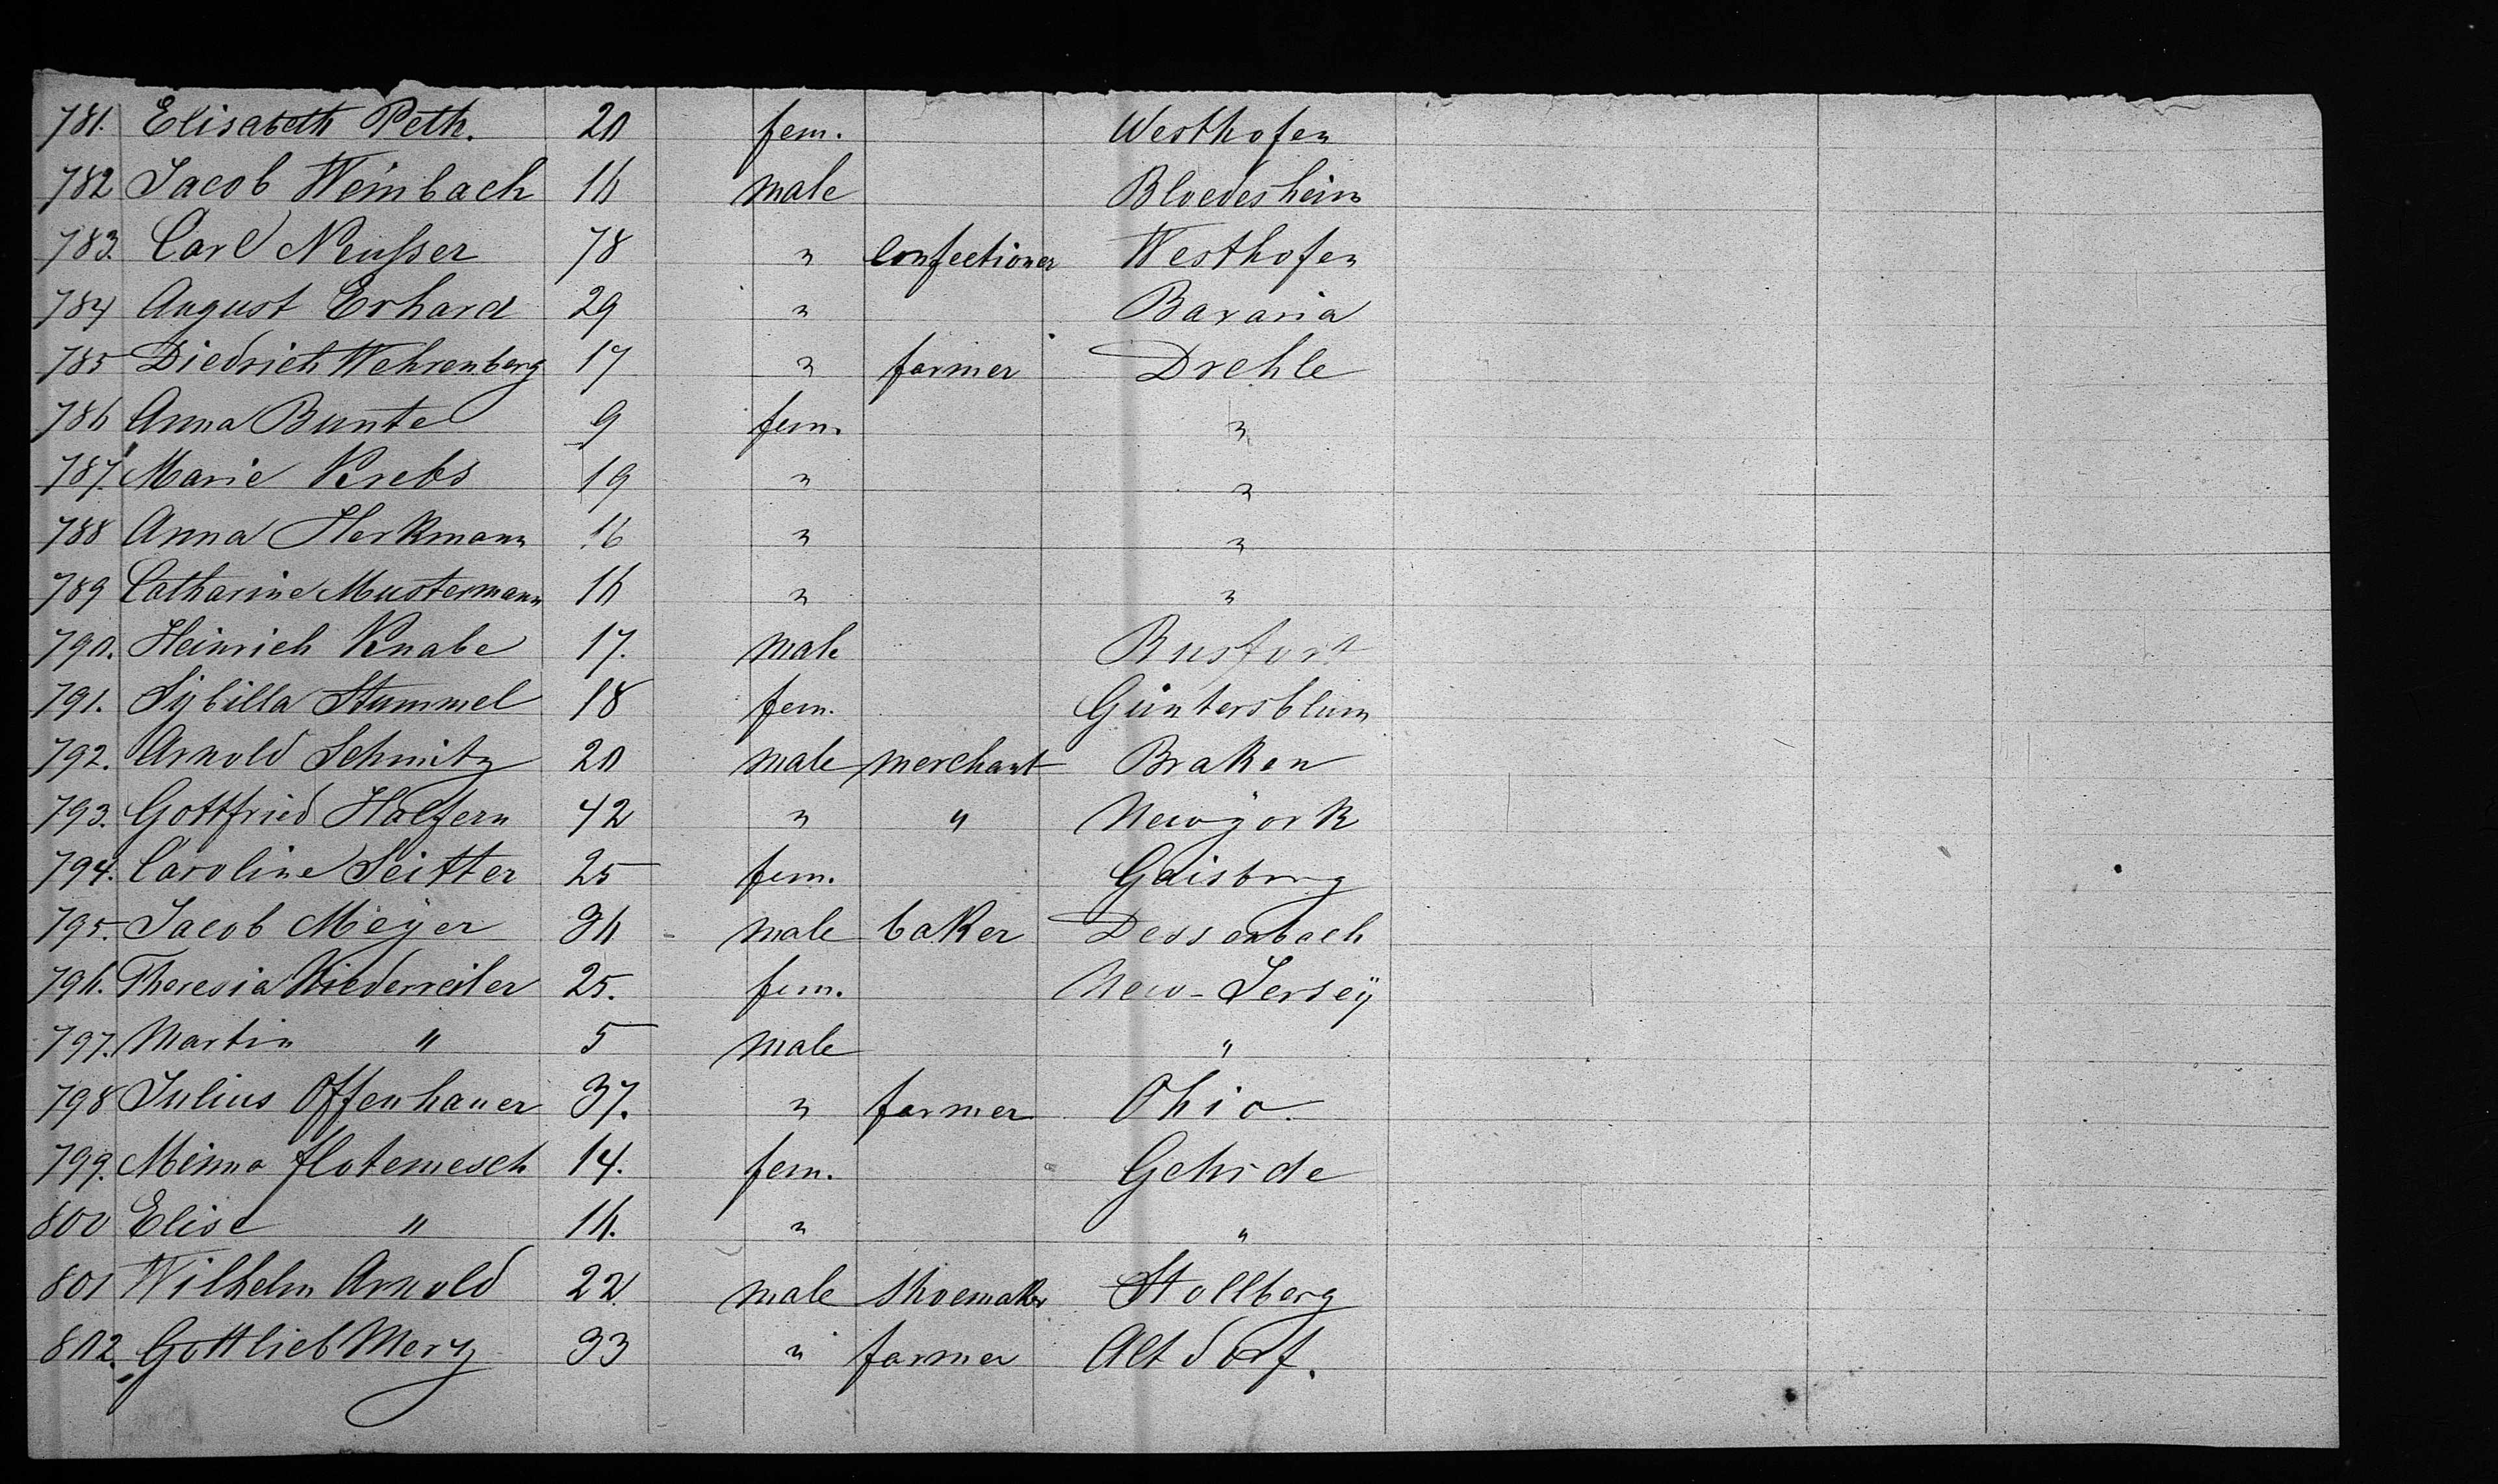 781. Elisabeth Peth. 20 fem. Westhofen
782 Jacob Weinbach 16 male Bloedesheim
783. Carl Neusser 78 " confectioner Westhofen
784 August Erhard 29 " Bavaria
785 Diedrich Wehrenberg 17 " farmer Drehle
786 Anna Bunte 9 fem. "
787. Marie Krebs 19 " "
788 Anna Herkmann 16 " "
789 Catharine Mustermann 16 " "
790. Heinrich Knabe 17. male Busfort
791. Sybilla Stummel 18 fem. Güntersblum
792. Arnold Schmitz 20 male merchant Braken
793. Gottfried Holfern 42 " " Newyork
794. Caroline Seitter 25 fem. Gaisburg
795. Jacob Meyer 36 male baker Dessenbach
796. Theresia Niederreiler 25. fem. New-Jersey
797. Martin " 5 male "
798 Julius Offenhauer 37. " farmer Ohio.
799. Minna flotemesch 14. fem. Gehrde
800 Elise " 16. " "
801 Wilhelm Arnold 22 male shoemaker Stollberg
802. Gottlieb Merz 33 " farmer Altdorf.